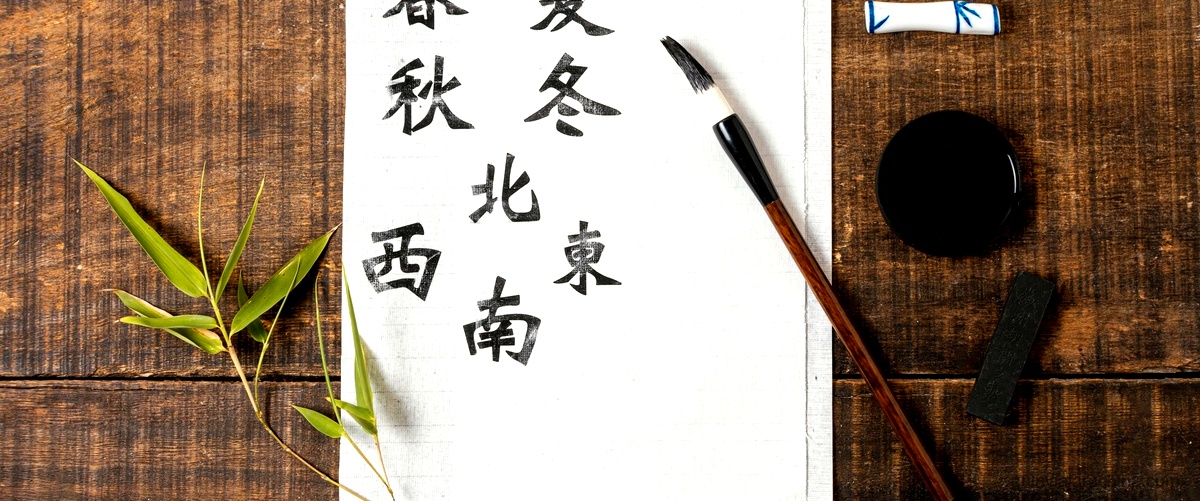 春 夏
秋 冬
北
西 東
南